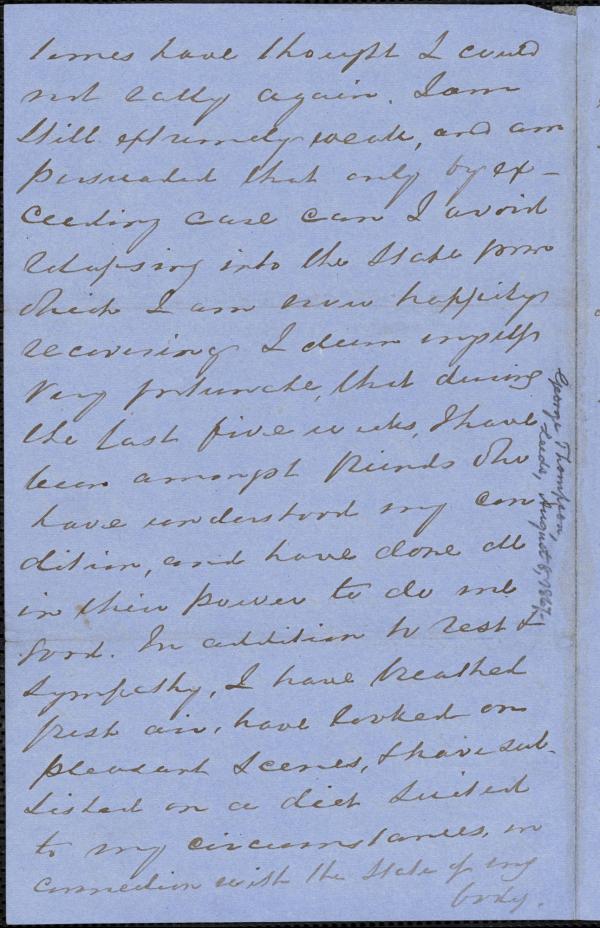 times have thought I could
not rally again. I am
still extremely weak, and am
persuaded that only by ex-
ceeding care can I avoid
relapsing into the state from
which I am now happily
recovering. I deem myself
very fortunate, that during
the last five weeks, I have
been amongst friends who
have understood my con
dition, and have done all
in their power to do me
good. In addition to rest &
sympathy, I have breathed
fresh air, have looked on
pleasant scenes, & have sub-
sisted on a diet suited
to my circumstances, in
connection with the state of my
body.
George Thompson,
Leeds, August 8, 1867.